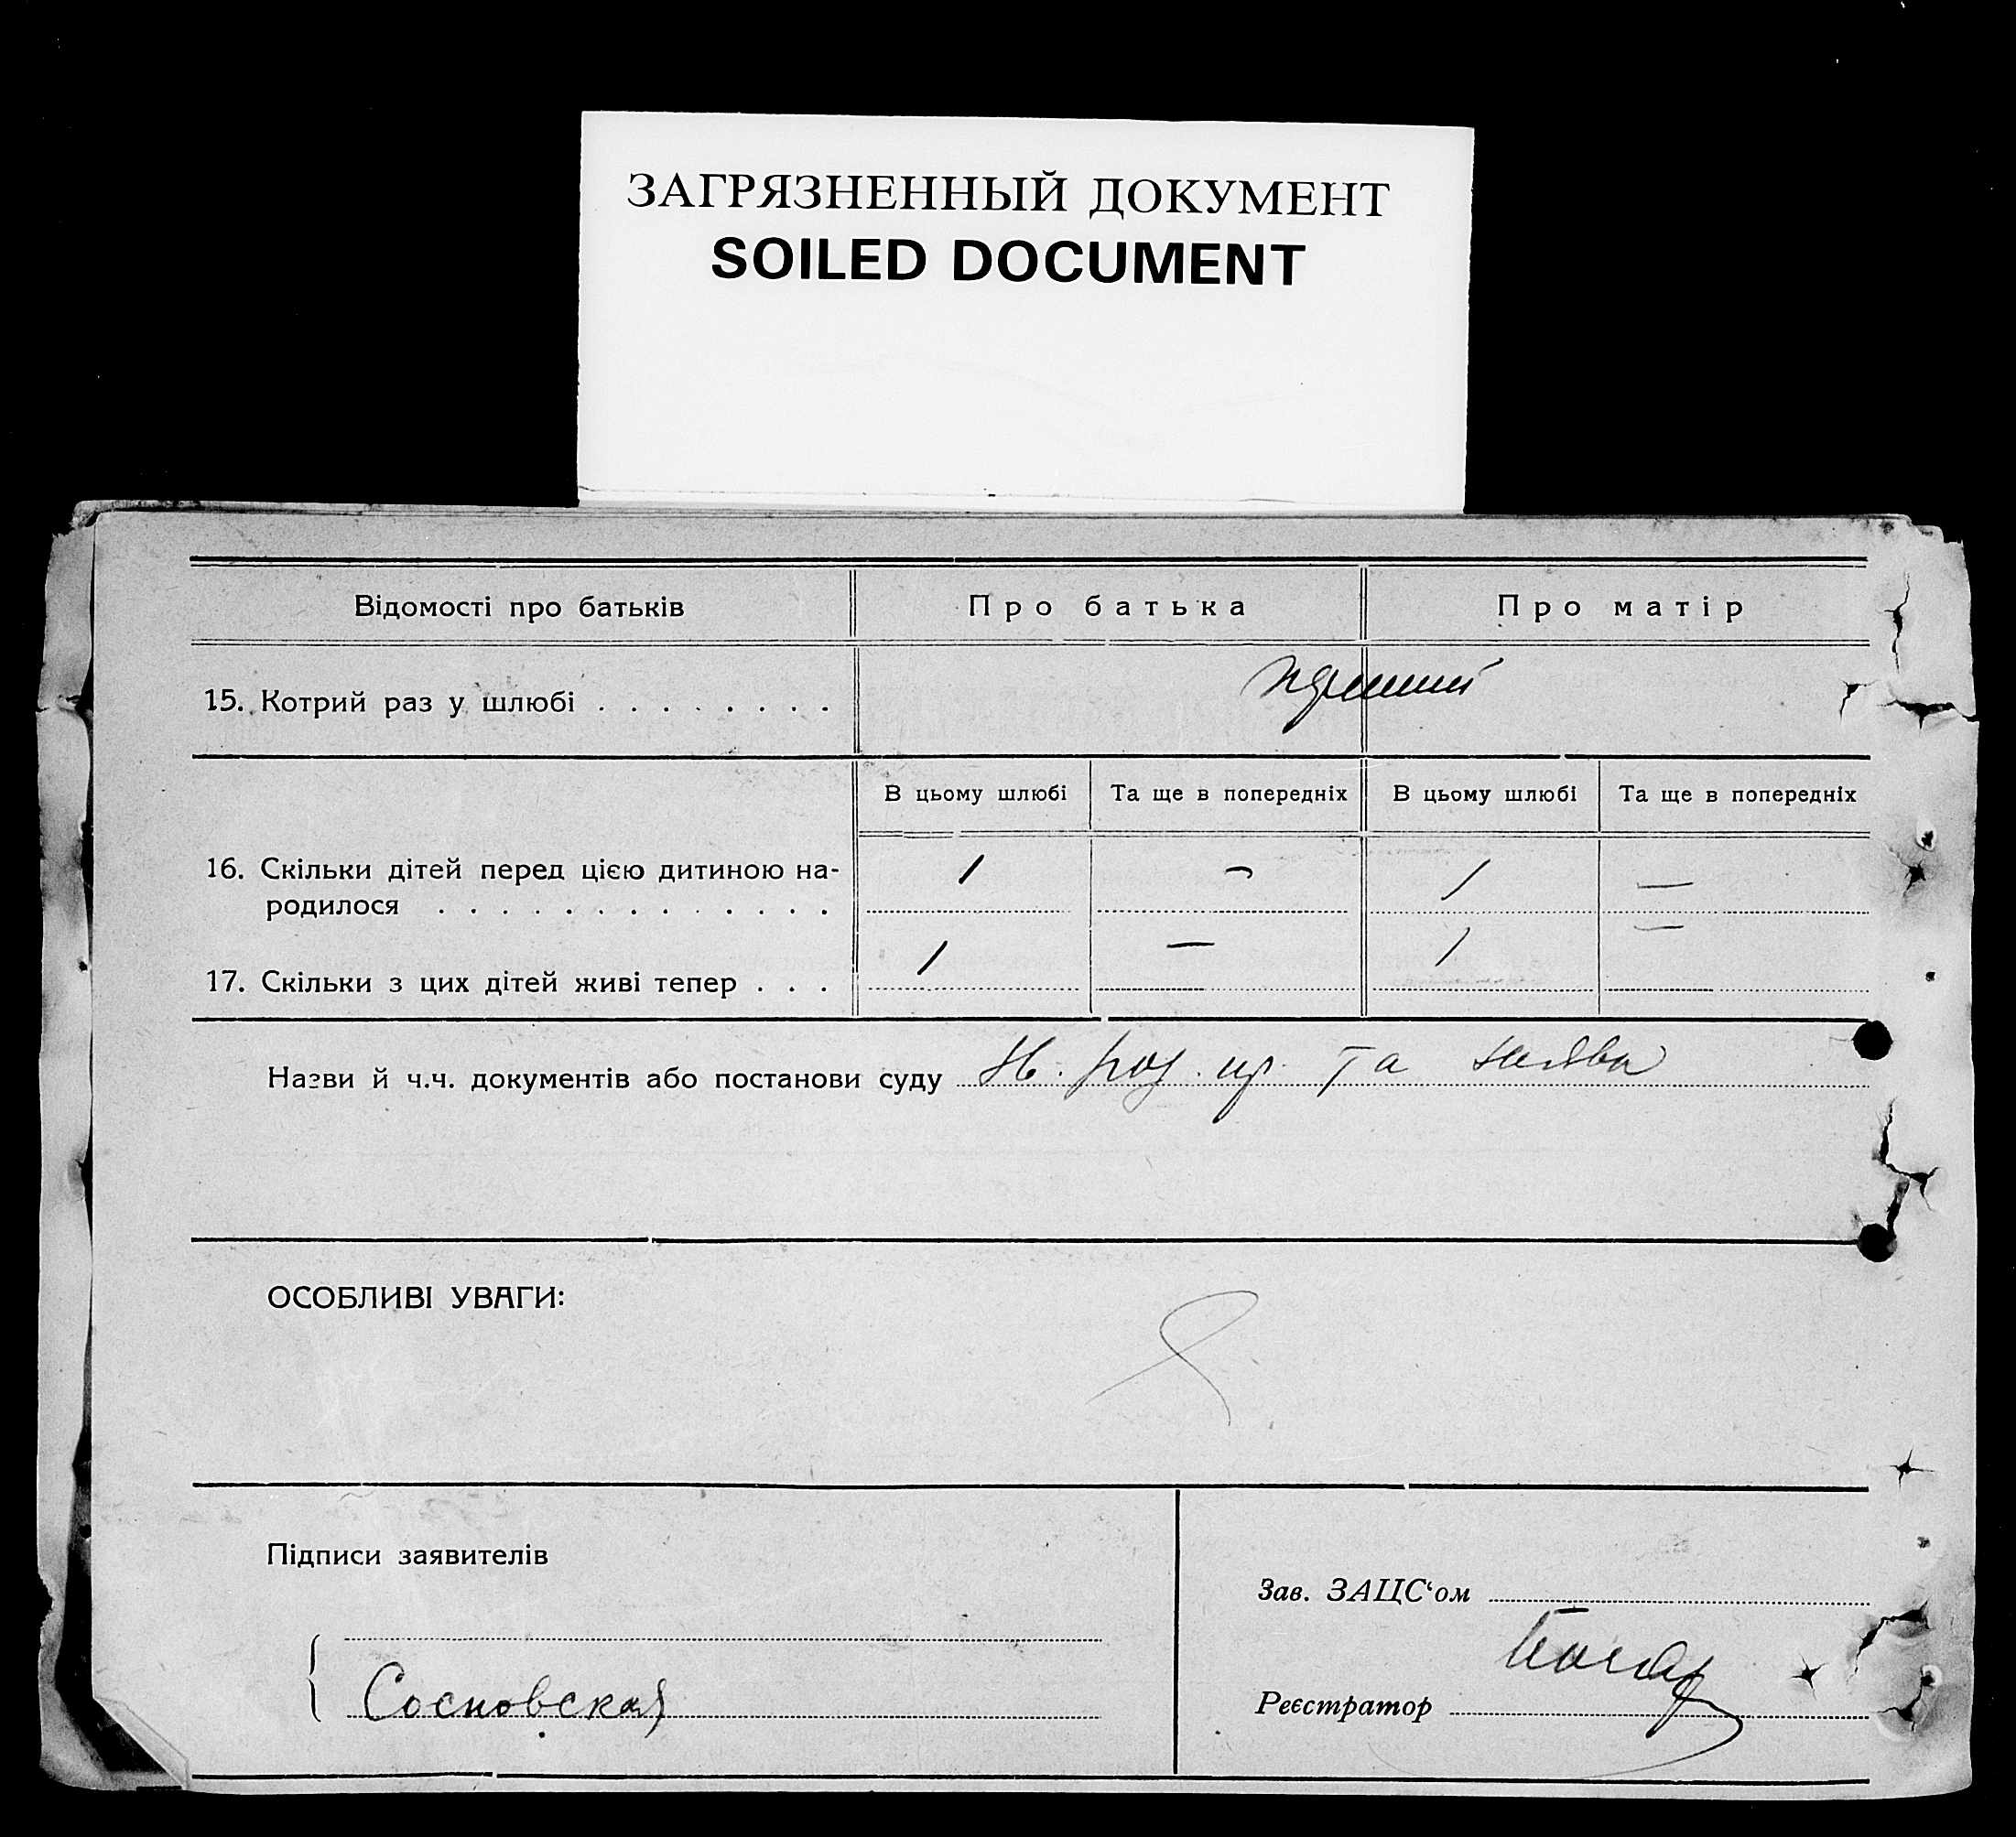 ЗАГРЯЗНЕННЫЙ ДОКУМЕНТ
SOILED DOCUMENT
Відомості про батьків Про батька Про матір
15. Котрий раз у шлюбі . . . . . . . .
В цьому шлюбі Та ще в попередніх В цьому шлюбі Та ще в попередніх
16. Скільки дітей перед цією дитиною на- 1 — 1 —
родилося . . . . . . . . . . . . .
17. Скільки з цих дітей живі тепер . . . 1 — 1 —
Назви й ч.ч. документів або постанови суду та
ОСОБЛИВІ УВАГИ:
Підписи заявителів
Зав. ЗАЦС‘ом
Сосновская
Реєстратор